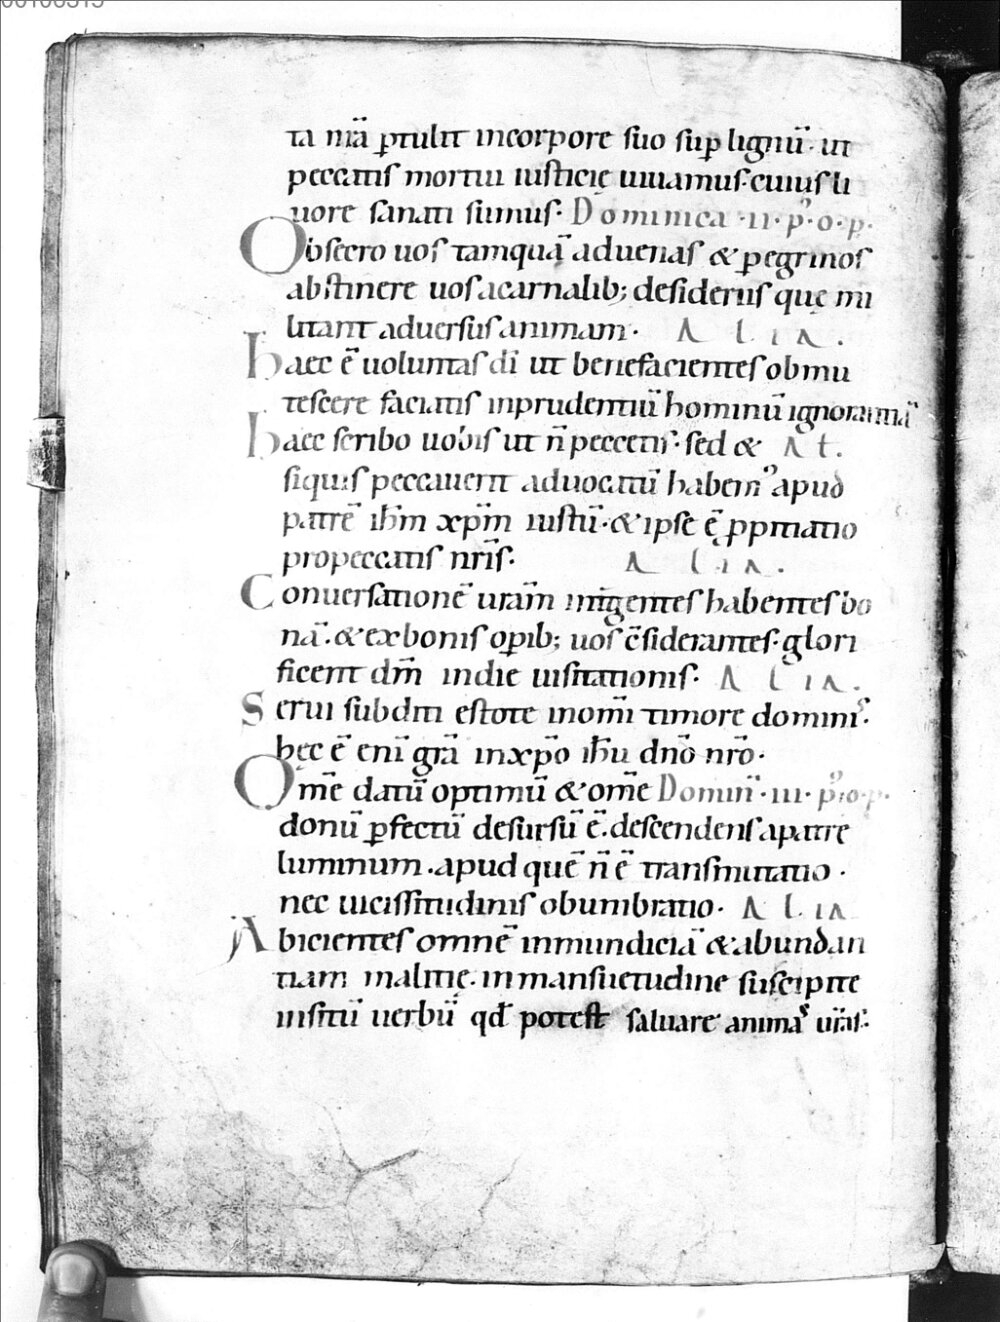 ta nr̄a ꝑtulit incorpore ſuo ſuꝑ lignū· ut
peccatiſ mortui iuſticię uiuamuſ· cuiuſ li
uore ſanati ſumuſ· Dominica ·ii· p°·o·p·
Obſecro uoſ tamquā aduenaſ & ꝑegrinoſ
abſtinere uoſ acarnalib; deſideriiſ quę mi
litant aduerſuſ animam· A L I A .
haec ē uoluntaſ dī ut benefacienteſ obmu
teſcere faciatiſ inprudentiū hominū ignorantiā
haec ſcribo uobiſ ut n̄ peccetiſ· ſed & A L .
ſiquiſ peccauerit aduocatū habem᾽ apud
patrē ihm̄ xpm̄ iuſtū· & ipſe ē ꝓpitiatio
propeccatiſ nr̄iſ· A L I A .
Conuerſationē ur̄am int̄ genteſ habenteſ bo
nā· & ex boniſ oꝑib; uoſ c̄ſideranteſ· glori
ficent dm̄ indie uiſitationiſ· A L I A .
Serui ſubditi eſtote inomī timore dominiſ·
hęc ē enī gr̄a inxp̄o ihū dn̄o nr̄o·
Om̄e datū optimū & om̄e Domin̄ ·iii· p°·o·p·
donū ꝑfectū deſurſū ē· deſcendenſ apatre
luminum· apud quē n̄ ē tranſmutatio ·
nec uiciſſitudiniſ obumbratio· A L I A
Abicienteſ omnē inmundiciā & abundan
tiam malitię· inmanſuetudine ſuſcipite
inſitū uerbū qđ poteſt ſaluare animaſ ur̄aſ·